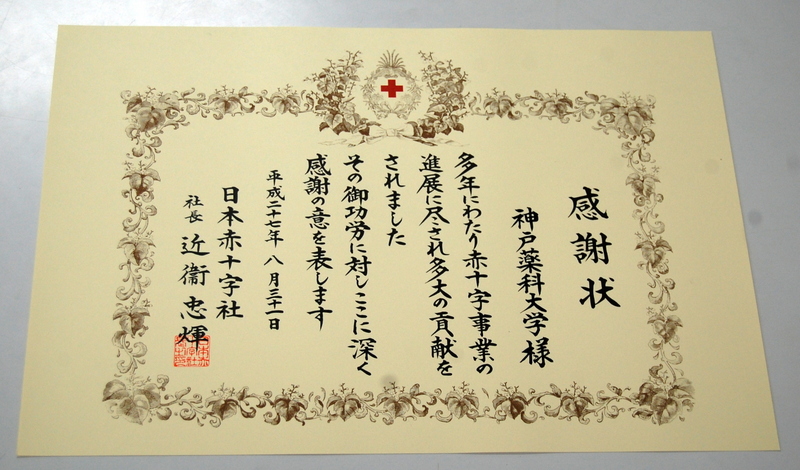 感謝状
神戸薬科大学様
多年にわたり赤十字事業の
進展に尽され多大の貢献を
されました
その御功労に対しここに深く
感謝の意を表します
平成二十七年 八月三十一日
日本赤十字社
社長 近衞忠煇